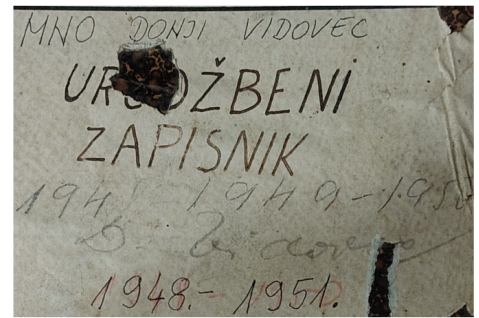 MNO DONJI VIDOVEC
URUDŽBENI
ZAPISNIK
1948-1949-1950
D. Vidovec
1948.- 1951.